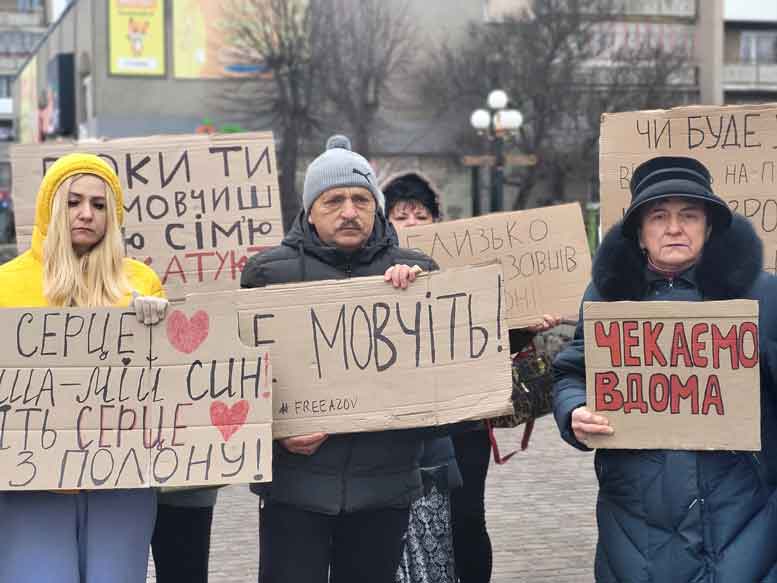 ОКИ ТИ
МОВЧИШ
Ю СІМ'Ю
СЕРЦЕ
ША-МІЙ СИН!
ІТЬ СЕРЦЕ
З ПОЛОНУ!
МОВЧІТЬ!
# FREEAZOV
ЛИЗЬКО
ЗОВЦІВ
ОНІ
ЧИ БУДЕ
НА-П
ЧЕКАЄМО
ВДОМА